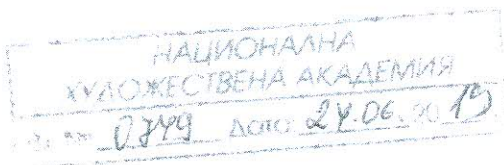 НАЦИОНАЛНА
ХУДОЖЕСТВЕНА АКАДЕМИЯ
0749 Дата: 24.06.2019